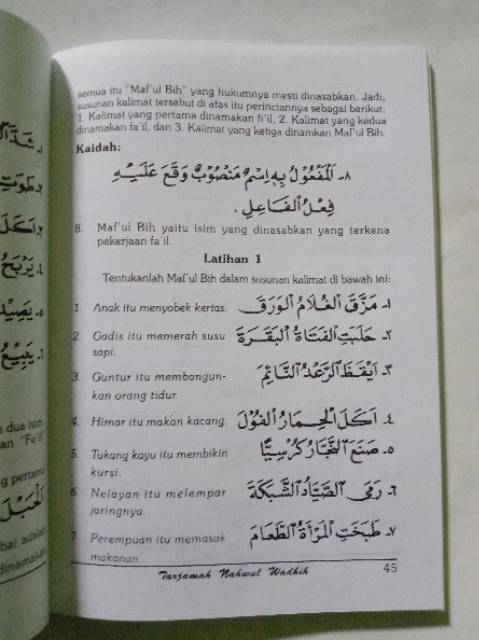 semua itu "Maf'ul Bih" yang hukumnya mesti dinasabkan. Jadi,
susunan kalimat tersebut di atas itu perinciannya sebagai berikut:
1. Kalimat yang pertama dinamakan fi'il, 2. Kalimat yang kedua
dinamakan fa'il, dan 3. Kalimat yang ketiga dinamkan Maf'ul Bih.
Kaidah:
٨- اَلْمَفْعُوْلُ بِهِ اِسْمٌ مَنْصُوْبٌ وَقَعَ عَلَيْهِ
فِعْلُ الْفَاعِلِ.
8. Maf'ul Bih yaitu isim yang dinasabkan yang terkena
pekerjaan fa'il.
Latihan 1
Tentukanlah Maf'ul Bih dalam susunan kalimat di bawah ini:
1. Anak itu menyobek kertas. ١- مَزَّقَ الْغُلَامُ الْوَرَقَ
2. Gadis itu memerah susu ٢- حَلَبَتِ الْفَتَاةُ الْبَقَرَةَ
sapi.
3. Guntur itu membangun- ٣- اَيْقَظَ الرَّعْدُ النَّائِمَ
kan orang tidur.
4. Himar itu makan kacang. ٤- اَكَلَ الْحِمَارُ الْفُوْلَ
5. Tukang kayu itu membikin ٥- صَنَعَ النَّجَّارُ كُرْسِيًّا
kursi.
6. Nelayan itu melempar ٦- رَمَى الصَّيَّادُ الشَّبَكَةَ
jaringnya.
7. Perempuan itu memasak ٧- طَبَخَتِ الْمَرْأَةُ الطَّعَامَ
makanan.
Tarjamah Nahwul Wadhih 45
اَكَلَ
٤- يَرْبَحُ
٥- يَصِيْدُ
٦- يَبِيْعُ
dua isim
an "Fa'il
g pertama
اَلْحَبْلَ
ba) adalah
dinamakan